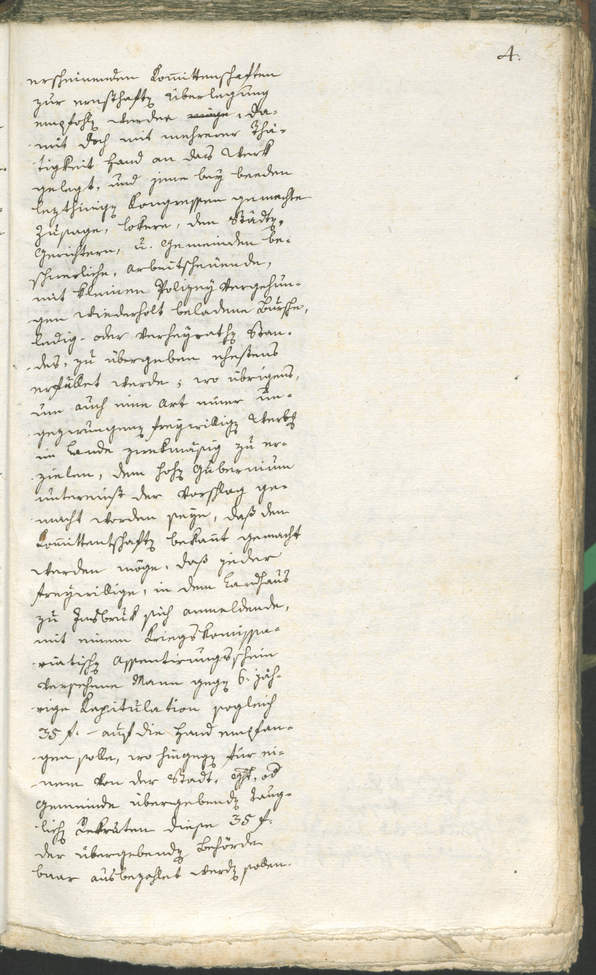 4.
erscheinenden Committenschaften
zur ernsthaftn Überlegung
empfohln werden möge, da-
mit doch mit mehrerer Thä-
tigkeit Hand an das Werk
gelegt, und jene bey beeden
letzthinign Kongressen gemachte
Zusage, lokere, den Städtn,
Gerichtern, u. Gemeinden be-
schwerliche, arbeitscheuende,
mit kleinen Polizey Vergehun-
gen wiederholt beladene Bursche,
ledig- oder verheyrathn Stan-
des, zu übergeben ehestens
erfüllet werde; wo übrigens,
um auch eine Art einer un-
gezwungenen freywillign Werbg
im Lande zwekmäsig zu er-
zielen, dem hohn Gubernium
unter der Vorschlag ge-
macht worden seye, daß den
Committentschaftn bekant gemacht
werden möge, daß jeder
freywillige, in dem Landhaus
zu Innsbruk sich anmeldende,
mit einem Kriegskomissa-
riatischn Assentirungsschein
versehene Mann gegn 6. jäh-
rige Kapitulation sogleich
35 f.- auf die Hand empfan-
gen solle, wo hingegn für ei-
nem von der Stadt, Ght, od
Gemeinde übergebendn taug-
lichn Rekruten diese 35 f.
der übergebendn Behörde
baar ausbezahlet werdn sollen.